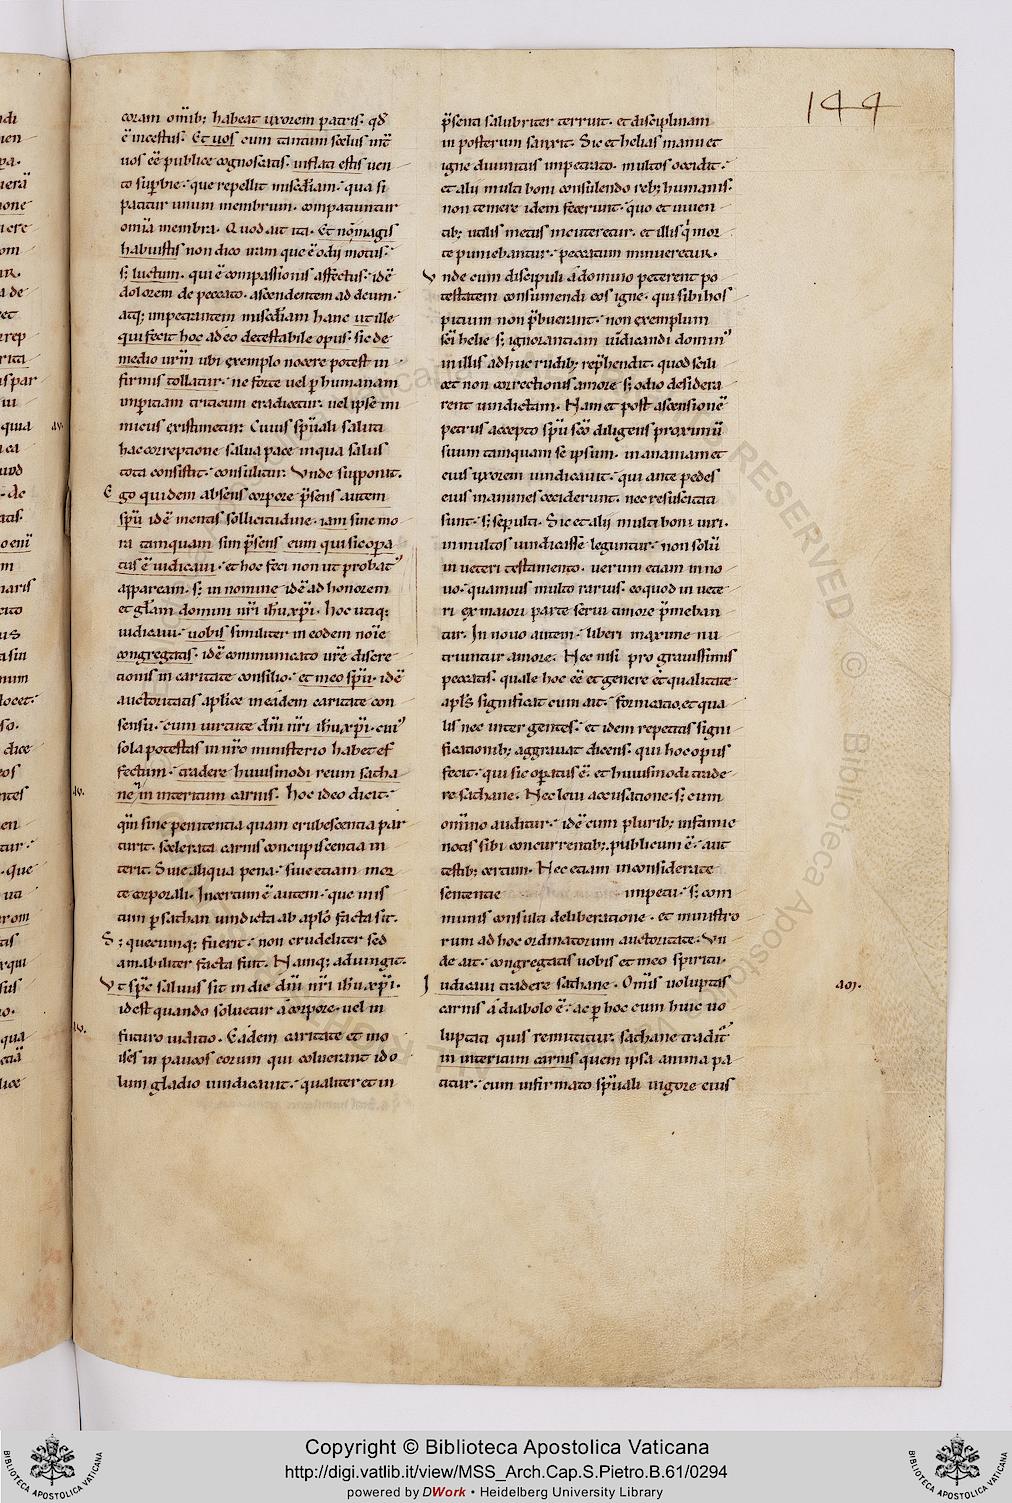 144
coram om̄ib; habeat uxorem patris. qđ
ē incestus. Et uos cum tantum scelus int̄
uos eē publice cognoscatis. inflati estis uen
to sup̄bie. que repellit misc̄diam. qua si
patitur unum membrum. compatiuntur
omīa membra. Quod ait ita. Et nō magis
habuistis non dico iram que ē odii motus.
s; luctum. qui ē compassionis affectus. idē
dolorem de peccato. ascendentem ad deum.
atq; impetrantem misc̄diam hanc ut ille
qui fecit hoc adeo detestabile opus. sic de
medio ur̄m ubi exemplo nocere potest in
firmis tollatur. ne forte uel p̄ humanam
imp̄itiam triticum eradicetur. uel ipse ini
micus existimetur. Cuius sp̄uali saluti
hac correptione salua pace in qua salus
tota consistit. consulitur. Unde supponit.
Ego quidem absens corpore p̄sens autem
sp̄u idē mentis sollicitudine. iam sine mo
ra tamquam sim p̄sens eum qui sic opa
tus ē iudicaui. et hoc feci non ut probat᾽
appaream. s; in nomine idē ad honorem
et gl̄am domini nr̄i ih̄u xp̄i. hoc utiq;
iudicaui. uobis similiter in eodem noīe
congregatis. idē communicato ur̄e discre
tionis in caritate consilio. et meo sp̄u. idē
auctoritatis aplīce in eadem caritate con
sensu. cum uirtute dn̄i nr̄i ih̄u xp̄i. cui᾽
sola potestas in nr̄o ministerio habet ef
fectum. tradere huiusmodi reum satha
ne in interitum carnis. Hoc ideo dicit.
qm̄ sine penitentia quam erubescentia par
turit. scelerata carnis concupiscentia in
terit. Siue aliqua pena. siue etiam mor
te corporali. Incertum ē autem. que uis
tum p̄ sathan uindicta ab aplō facta sit.
S; quecunq; fuerit. non crudeliter sed
amabiliter facta fuit. Namq; adiungit.
Ut sp̄c saluus sit in die dn̄i nr̄i ih̄u xp̄i.
idest quando soluetur a corpore. uel in
futuro iuditio. Eadem caritate et mo
ises in paucos eorum qui coluerant ido
lum gladio uindicauit. qualiter et in
p̄senti salubriter terruit. et disciplinam
in posterum sanxit. Sic et helias manu et
igne diuinitus impetrato. multos occidit.
et alii multi boni consulendo reb; humanis.
non temere idem fecerunt. quo et uiuen
tib; utilis metus incuteretur. et illis q̄ mor
te puniebantur. peccatum minueretur.
Unde cum discipuli a domino peterent po
testatem consumendi eos igne. qui sibi hos
pitium non p̄buerant. non exemplum
sc̄i helie s; ignorantiam uīdicandi domin᾽
in illis adhuc rudib; rep̄hendit. quod scili
cet non correctionis amore s; odio desidera
rent uindictam. Nam et post ascensionē
petrus accepto sp̄u sc̄o diligens proximū
suum tamquam se ipsum. in ananiam et
eius uxorem uindicauit. qui ante pedes
eius inanimes ceciderunt. nec resuscitati
sunt. s; sepulti. Sic et alii multi boni uiri.
in multos uindicasse leguntur. non solū
in ueteri testamento. uerum etiam in no
uo. quamuis multo rarius. eo quod in uete
ri ex maiori parte serui timore p̄meban
tur. In nouo autem. liberi maxime nu
triuntur amore. Nec nisi pro grauissimis
peccatis. quale hoc eē et genere et qualitate
apl̄s significat cum ait. fornicatio. et qua
lis nec inter gentes. et idem repetitas signi
ficationib; aggrauat dicens. qui hoc opus
fecit. qui sic op̄atus ē. et huiusmodi trade
re sathane. Nec leui accusatione. s; cum
omīno auditur. idē cum plurib; infamie
notis sibi concurrentib;. publicum ē. aut
testib; certum. Nec etiam inconsiderate
sententie impetu. s; com
munis consulta deliberatione. et ministro
rum ad hoc ordinatorum auctoritate. Un
de ait. congregatis uobis et meo spiritu.
Iudicaui tradere sathane. Om̄is uoluptas
carnis a diabolo ē. ac p̄ hoc cum huic uo
luptati quis remittitur. sathane tradit᾽
in interitum carnis quem ipsa anima pa
titur. cum infirmato sp̄uali uigore eius
aoī.
Copyright © Biblioteca Apostolica Vaticana
http://digi.vatlib.it/view/MSS_Arch.Cap.S.Pietro.B.61/0294
powered by DWork • Heidelberg University Library